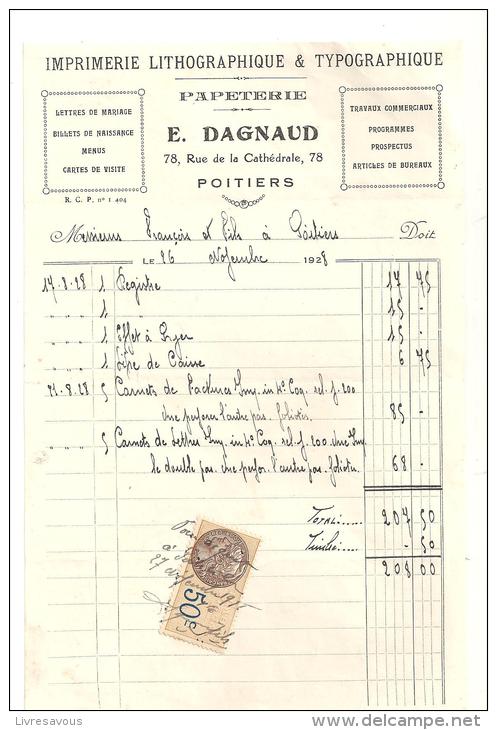 IMPRIMERIE LITHOGRAPHIQUE & TYPOGRAPHIQUE
PAPETERIE
E. DAGNAUD
78, Rue de la Cathédrale, 78
POITIERS
LETTRES DE MARIAGE
BILLETS DE NAISSANCE
MENUS
CARTES DE VISITE
R. C. P. nº 1 404
TRAVAUX COMMERCIAUX
PROGRAMMES
PROSPECTUS
ARTICLES DE BUREAUX
Messieurs François et Fils à Poitiers Doit
LE 26 Novembre 1928
17-8-28 1 Registre 17 75
" " " 1 " 15 -
" " " 1 Effet à Payer 15 -
" " " 1 de Caisse 6 75
5 Carnets de Factures Imp. in 4º Coq. rel. f. 200
Une perforée l'autre pas. foliotés. 85 -
" " " 5 Carnets de Lettres Imp. in 4º Coq rel. f. 200 Une Imp.
le double pas. Une perfor. l'autre pas. foliotés. 68 -
Total 207 50
Timbre - 50
208 00
50 c
Livresavous
www.delcampe.net